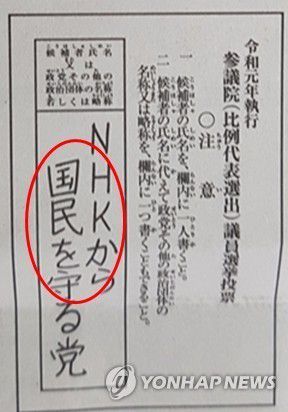 令和元年執行
参議院（比例代表選出）議員選挙投票
〇注意
一 候補者の氏名を、欄内に一人書くこと。
二 候補者の氏名に代えて政党その他の政治団体の
名称又は略称を、欄内に一つ書くこともできること。
候補者氏名
又は
政党その他の
政治団体の名称
若しくは略称
NHKから
国民を守る党
YONHAP NEWS